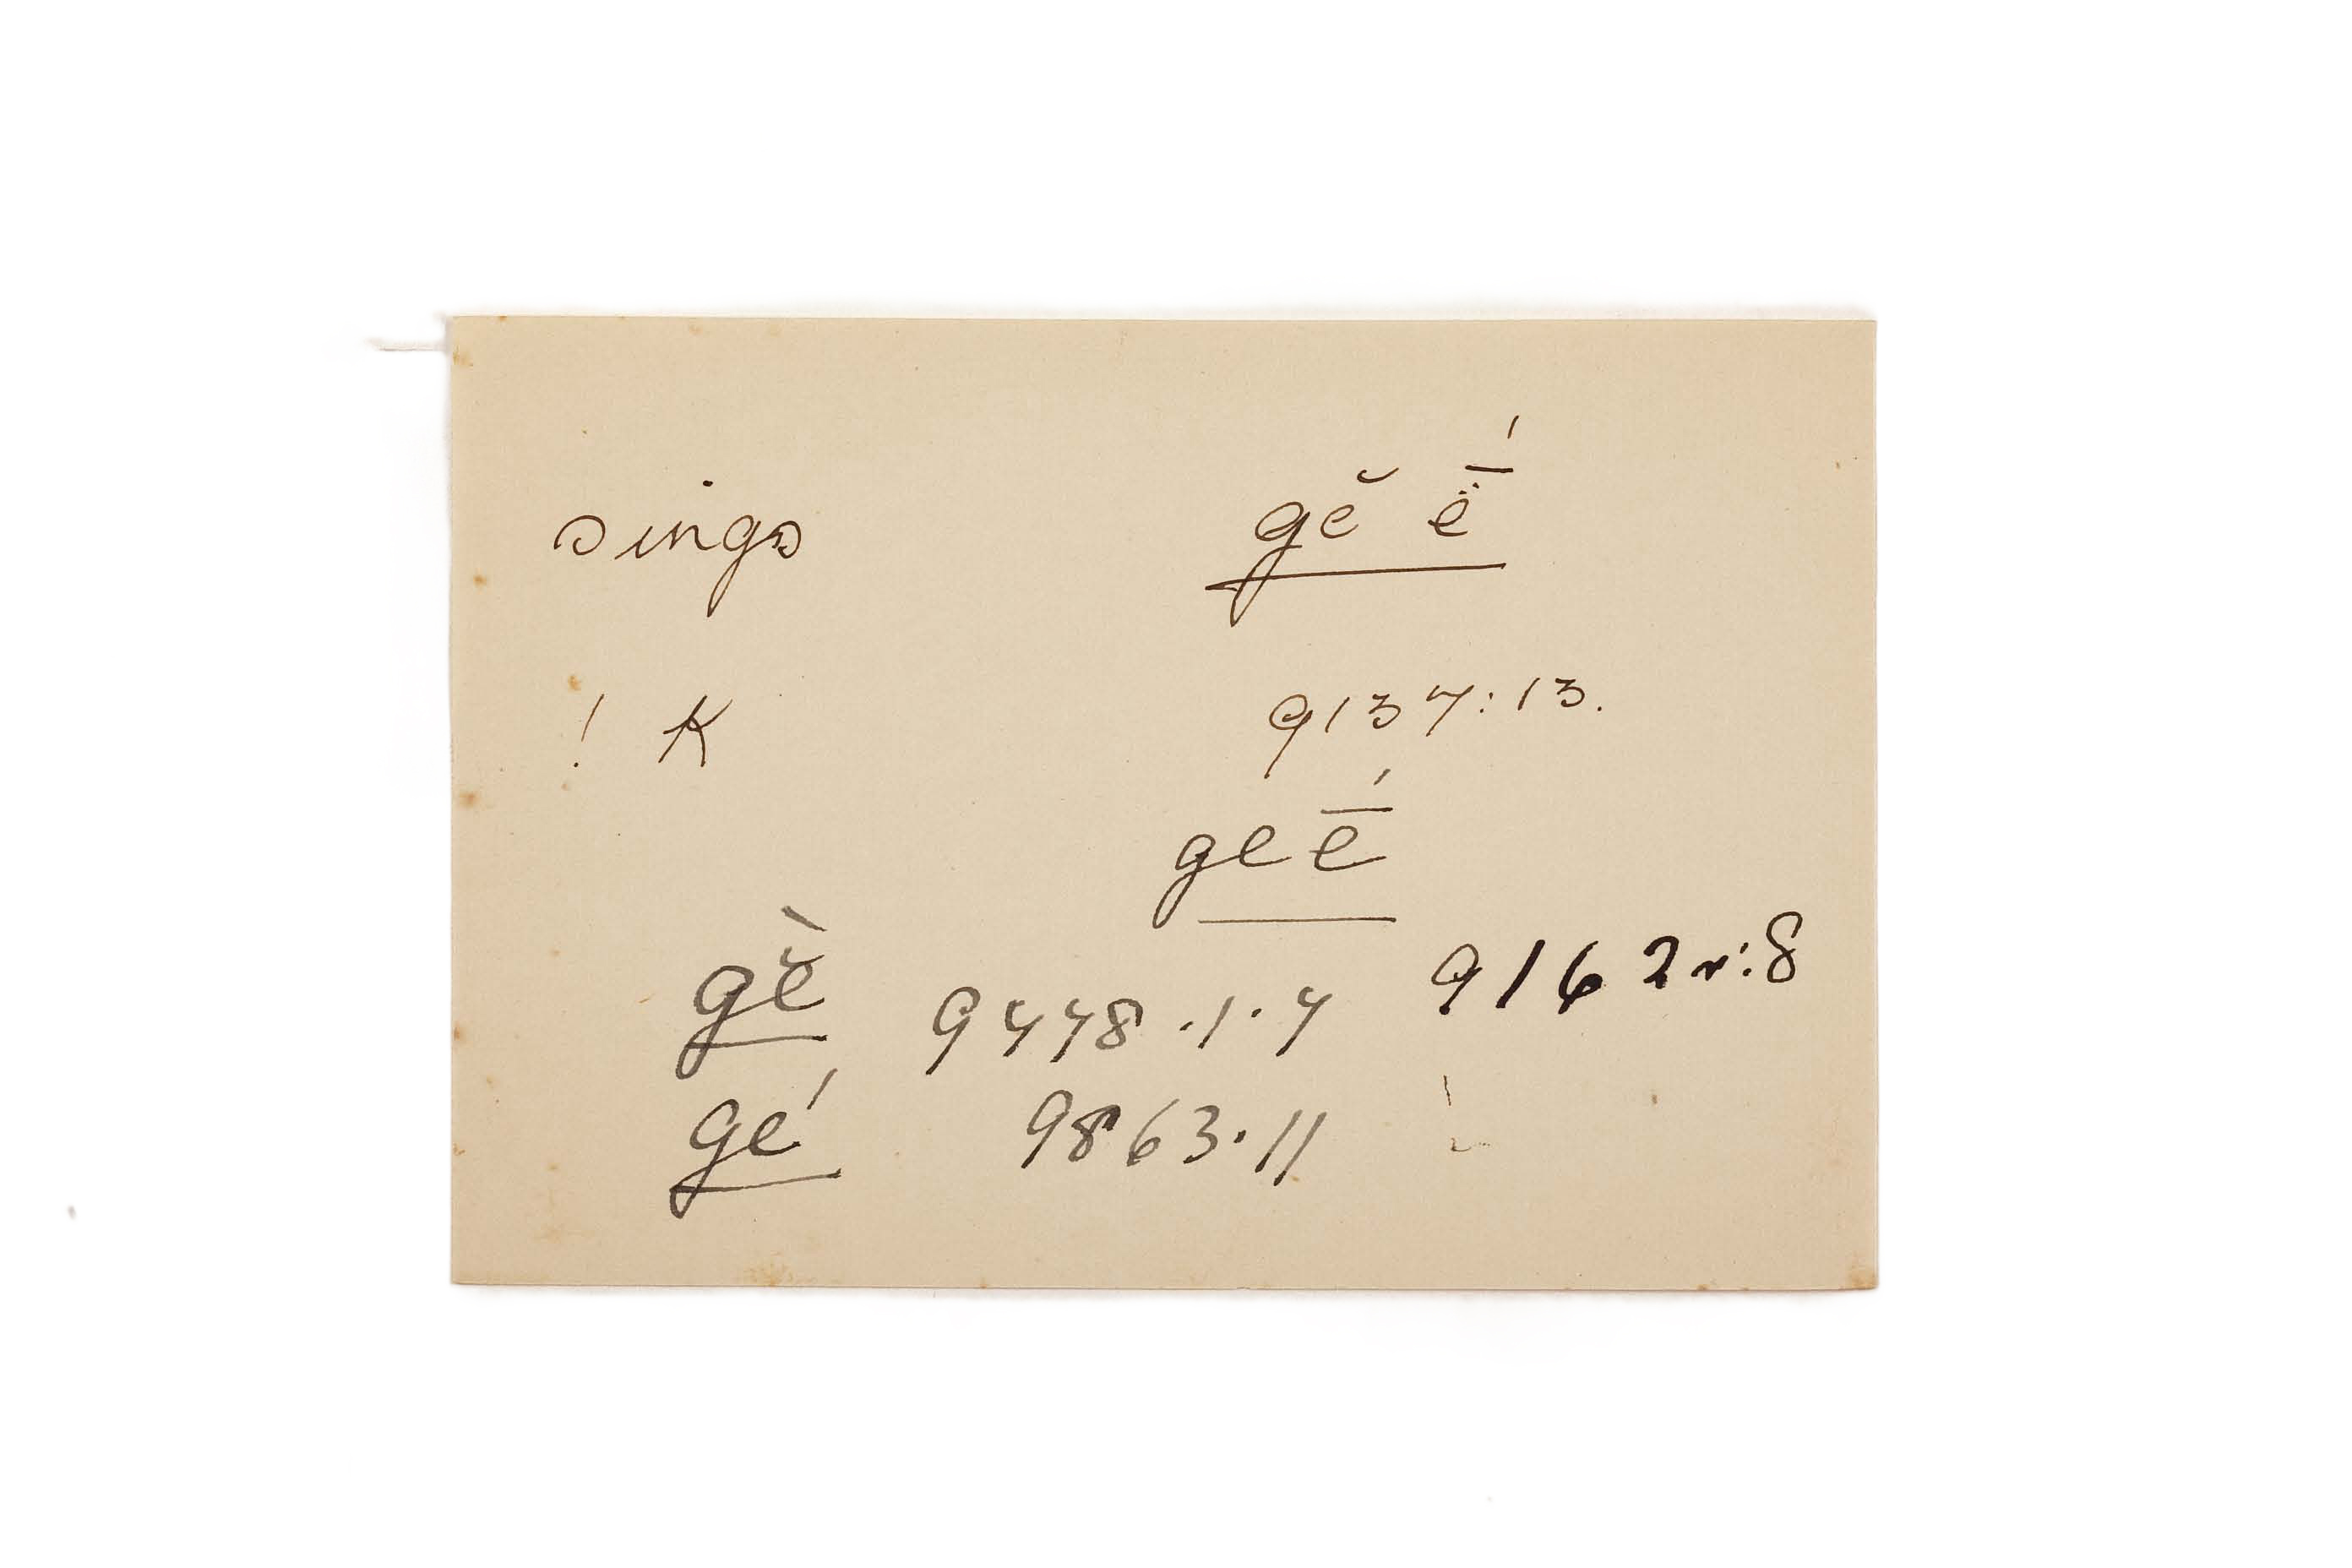 sings gĕ ḗ̈
! K 9137:13.
geḗ
9162r:8
gĕ̀ 9448.1.7
gé 9863.11